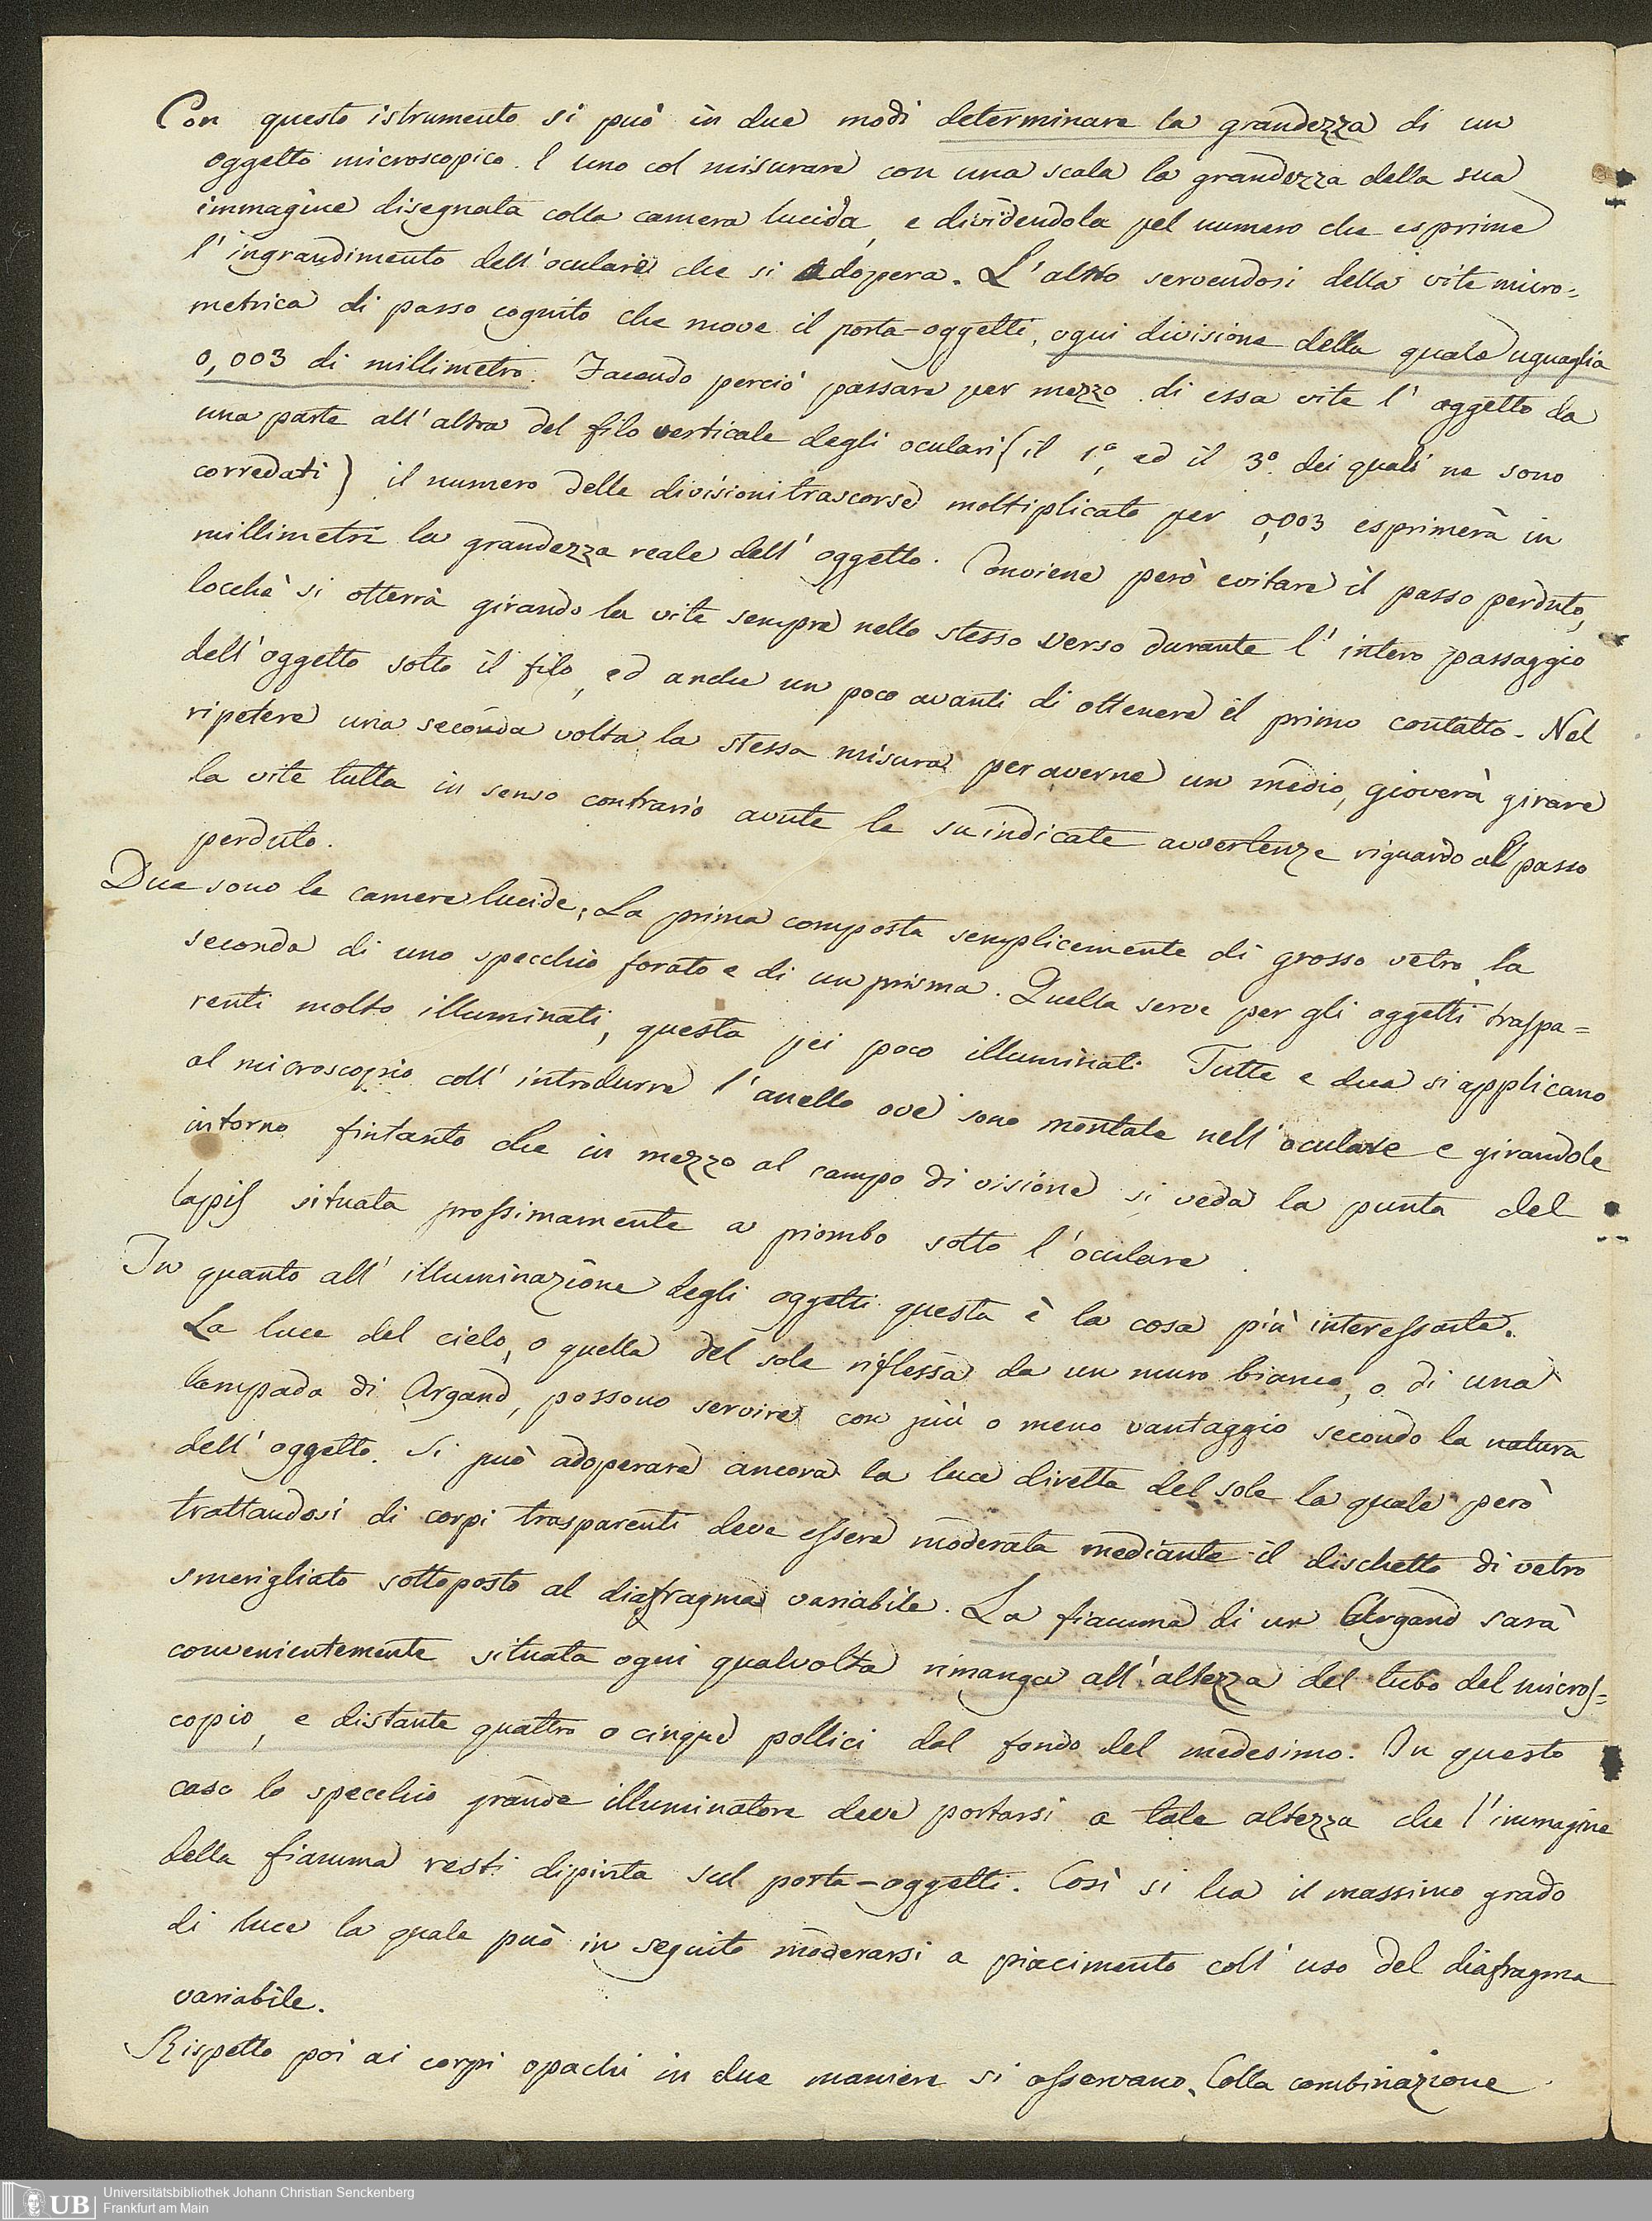 Con questo istrumento si può in due modi determinare la grandezza di un
oggetto microscopico. l'uno col misurare con una scala la grandezza della sua
immagine disegnata colla camera lucida, e dividendola pel numero che esprime
l'ingrandimento dell'oculare che si adopera. L'altro servendosi della vite micro=
metrica di passo cognito che move il porta-oggetti, ogni divisione della quale uguaglia
0,003 di millimetro. Facendo perciò passare per mezzo di essa vite l'oggetto da
una parte all'altra del filo verticale degli oculari (il 1º, ed il 3º dei quali ne sono
corredati) il numero delle divisioni trascorse moltiplicato per 0,003 esprimerà in
millimetri la grandezza reale dell'oggetto. Conviene però evitare il passo perduto,
locchè si otterrà girando la vite sempre nello stesso verso durante l'intero passaggio
dell'oggetto sotto il filo, ed anche un poco avanti di ottenere il primo contatto. Nel
ripetere una seconda volta la stessa misura per averne un medio, gioverà girare
la vite tutta in senso contrario avute le suindicate avvertenze riguardo al passo
perduto.
Due sono le camere lucide; La prima composta semplicemente di grosso vetro, la
seconda di uno specchio forato e di un prisma. Quella serve per gli oggetti traspa=
renti molto illuminati, questa pei poco illuminati. Tutte e due si applicano
al microscopio coll'introdurre l'anello ove sono montate nell'oculare e girandole
intorno fintanto che in mezzo al campo di visione si veda la punta del
lapis situata prossimamente a piombo sotto l'oculare.
In quanto all'illuminazione degli oggetti questa è la cosa più interessante.
La luce del cielo, o quella del sole riflessa da un muro bianco, o di una
lampada di Argand, possono servire con più o meno vantaggio secondo la natura
dell'oggetto. Si può adoperare ancora la luce diretta del sole la quale però
trattandosi di corpi trasparenti deve essere moderata mediante il dischetto di vetro
smerigliato sottoposto al diafragma variabile. La fiamma di un Argand sarà
convenientemente situata ogni qualvolta rimanga all'altezza del tubo del micros=
copio, e distante quattro o cinque pollici dal fondo del medesimo. In questo
caso lo specchio grande illuminatore deve portarsi a tale altezza che l'immagine
della fiamma resti dipinta sul porta-oggetti. Così si ha il massimo grado
di luce la quale può in seguito moderarsi a piacimento coll'uso del diafragma
variabile.
Rispetto poi ai corpi opachi in due maniere si osservano. Colla combinazione
UB Universitätsbibliothek Johann Christian Senckenberg
Frankfurt am Main